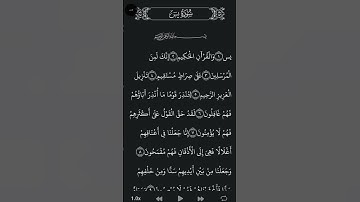 سُورَةُ يسٓ
يسٓ ۝ وَالْقُرْآنِ الْحَكِيمِ ۝ إِنَّكَ لَمِنَ
الْمُرْسَلِينَ ۝ عَلَىٰ صِرَاطٍ مُسْتَقِيمٍ ۝ تَنْزِيلَ
الْعَزِيزِ الرَّحِيمِ ۝ لِتُنْذِرَ قَوْمًا مَا أُنْذِرَ آبَاؤُهُمْ
فَهُمْ غَافِلُونَ ۝ لَقَدْ حَقَّ الْقَوْلُ عَلَىٰ أَكْثَرِهِمْ
فَهُمْ لَا يُؤْمِنُونَ ۝ إِنَّا جَعَلْنَا فِي أَعْنَاقِهِمْ
أَغْلَالًا فَهِيَ إِلَى الْأَذْقَانِ فَهُمْ مُقْمَحُونَ ۝
وَجَعَلْنَا مِنْ بَيْنِ أَيْدِيهِمْ سَدًّا وَمِنْ خَلْفِهِمْ
1.0x